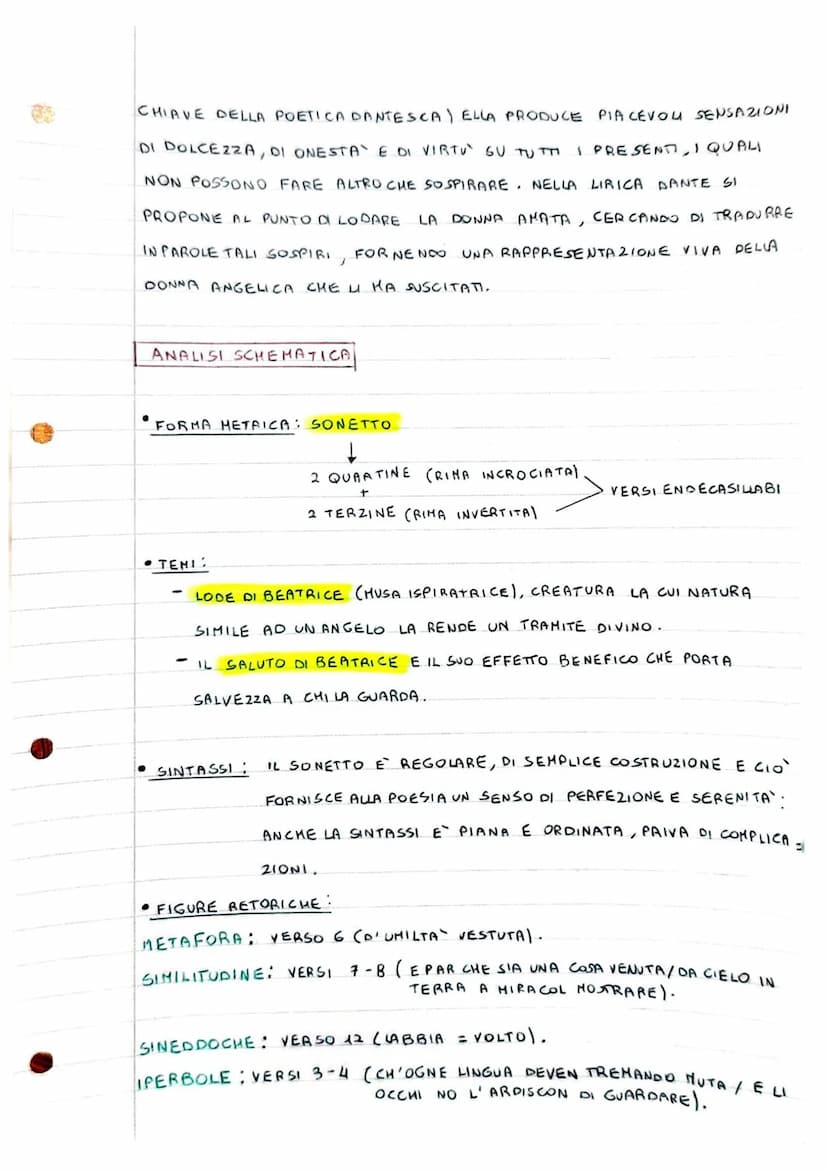 CHIAVE DELLA POETICA DANTESCA) ELLA PRODUCE PIACEVOLI SENSAZIONI
DI DOLCEZZA, DI ONESTA` E DI VIRTU` SU TUTTI I PRESENTI, I QUALI
NON POSSONO FARE ALTRO CHE SOSPIRARE. NELLA LIRICA DANTE SI
PROPONE AL PUNTO DI LODARE LA DONNA AMATA, CERCANDO DI TRADURRE
IN PAROLE TALI SOSPIRI, FORNENDO UNA RAPPRESENTAZIONE VIVA DELLA
DONNA ANGELICA CHE LI HA SUSCITATI.
ANALISI SCHEMATICA
• FORMA METRICA: SONETTO
↓
2 QUARTINE (RIMA INCROCIATA)
+
VERSI ENDECASILLABI
2 TERZINE (RIMA INVERTITA)
• TEMI:
- LODE DI BEATRICE (MUSA ISPIRATRICE), CREATURA LA CUI NATURA
SIMILE AD UN ANGELO LA RENDE UN TRAMITE DIVINO.
- IL SALUTO DI BEATRICE E IL SUO EFFETTO BENEFICO CHE PORTA
SALVEZZA A CHI LA GUARDA.
• SINTASSI: IL SONETTO E` REGOLARE, DI SEMPLICE COSTRUZIONE E CIO`
FORNISCE ALLA POESIA UN SENSO DI PERFEZIONE E SERENITA`:
ANCHE LA SINTASSI E` PIANA E ORDINATA, PRIVA DI COMPLICA=
ZIONI.
• FIGURE RETORICHE:
METAFORA: VERSO 6 (D'UMILTA` VESTUTA).
SIMILITUDINE: VERSI 7-8 (E PAR CHE SIA UNA COSA VENUTA/DA CIELO IN
TERRA A MIRACOL MOSTRARE).
SINEDDOCHE: VERSO 12 (LABBIA = VOLTO).
IPERBOLE: VERSI 3-4 (CH'OGNE LINGUA DEVEN TREMANDO MUTA / E LI
OCCHI NO L'ARDISCON DI GUARDARE).